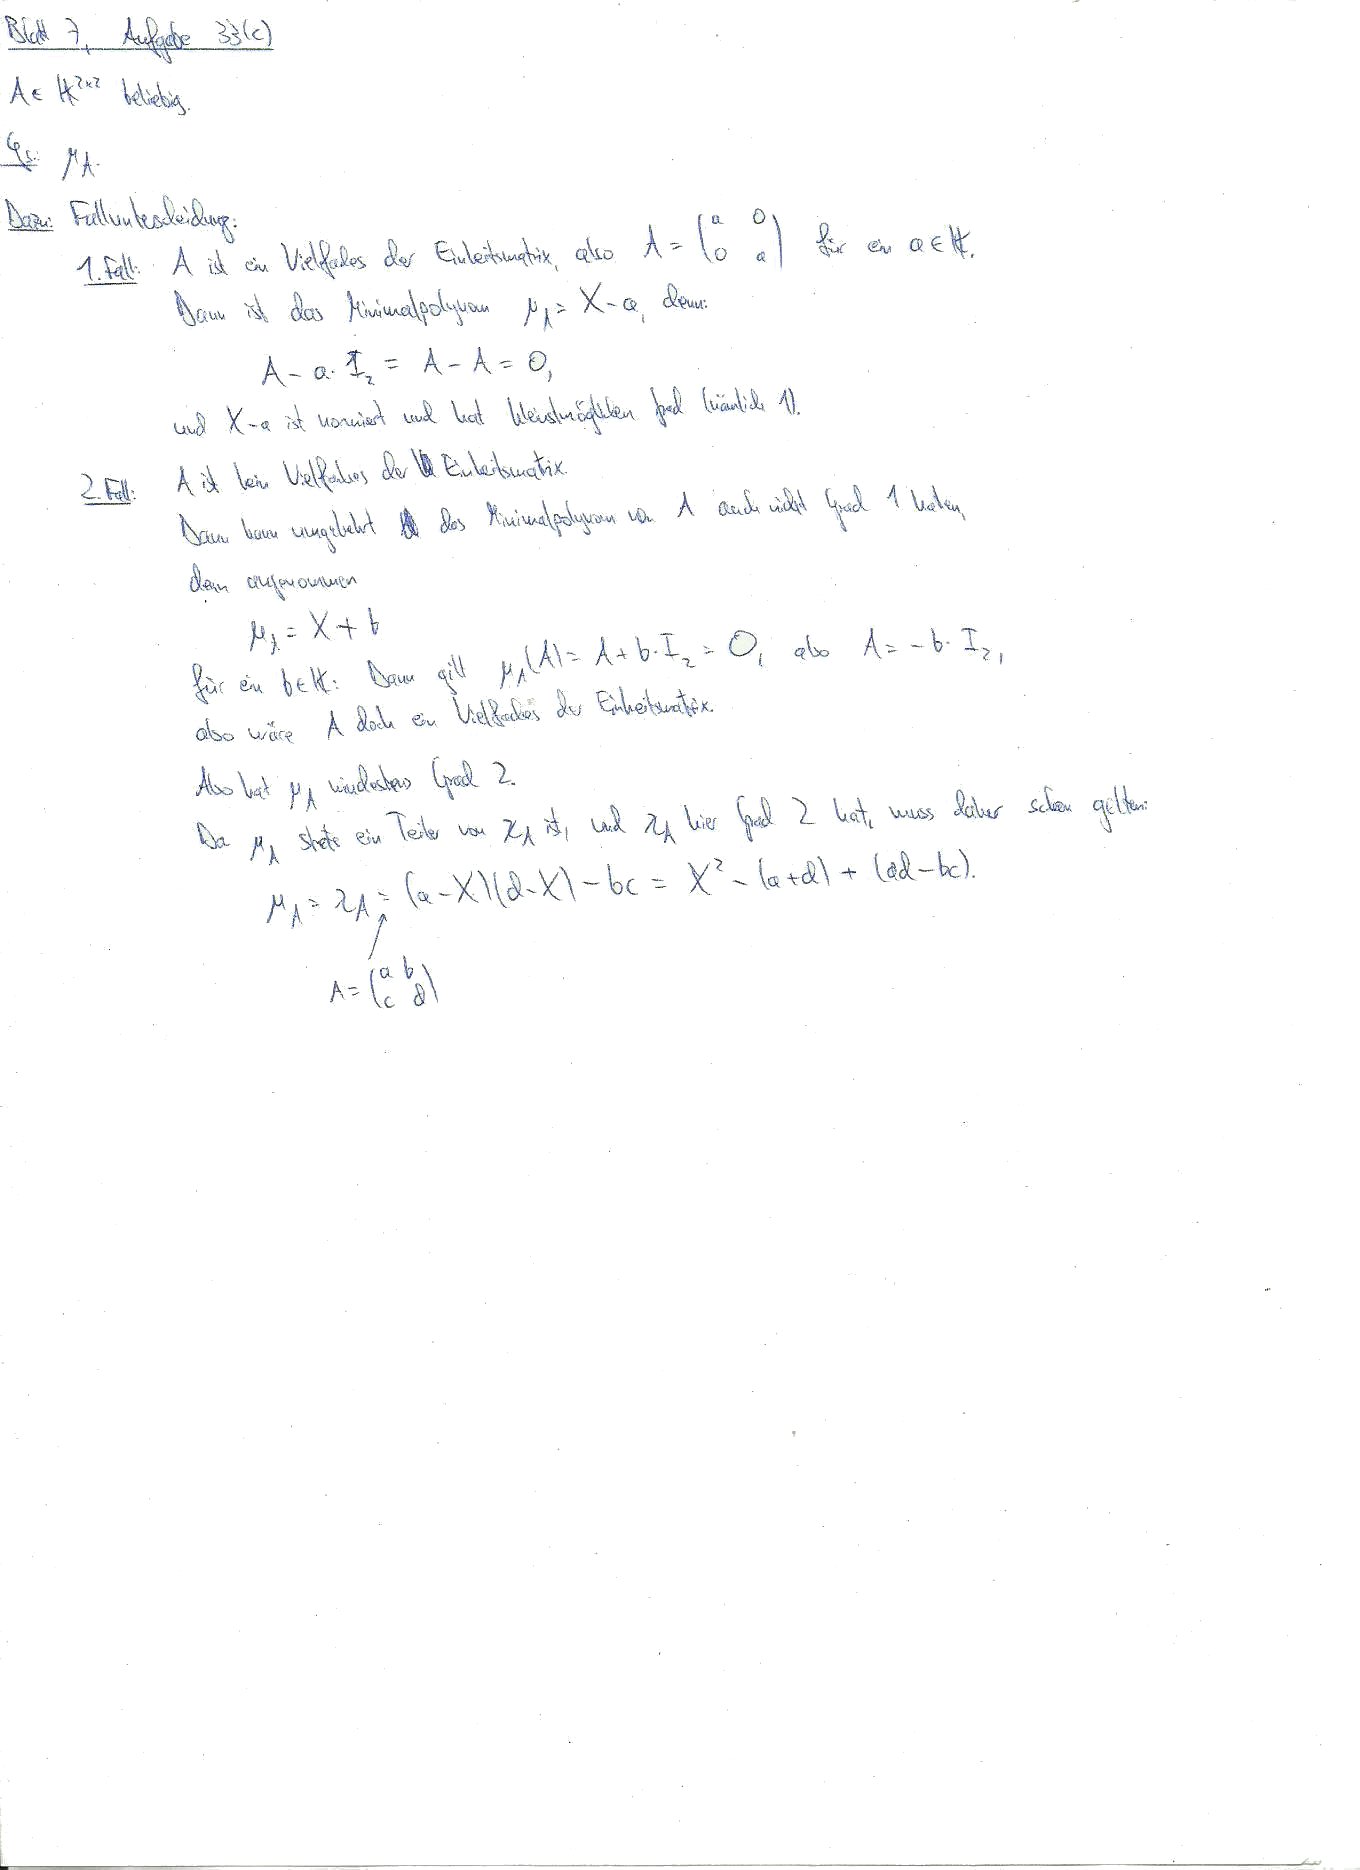 Blatt 7, Aufgabe 33(c)
A ∈ K^{2×2} beliebig.
Ges: μ_A.
Dazu: Fallunterscheidung:
1. Fall: A ist ein Vielfaches der Einheitsmatrix, also A = (a 0; 0 a) für ein a ∈ K.
Dann ist das Minimalpolynom μ_A = X - a, denn:
A - a · I_2 = A - A = 0,
und X - a ist normiert und hat kleinstmöglichen Grad (nämlich 1).
2. Fall: A ist kein Vielfaches der Einheitsmatrix.
Dann kann umgekehrt das Minimalpolynom von A auch nicht Grad 1 haben,
denn angenommen
μ_A = X + b
für ein b ∈ K: Dann gilt μ_A(A) = A + b · I_2 = 0, also A = -b · I_2,
also wäre A doch ein Vielfaches der Einheitsmatrix.
Also hat μ_A mindestens Grad 2.
Da μ_A stets ein Teiler von χ_A ist, und χ_A hier Grad 2 hat, muss daher schon gelten:
μ_A = χ_A = (a - X)(d - X) - bc = X² - (a+d) + (ad - bc).
A = (a b; c d)